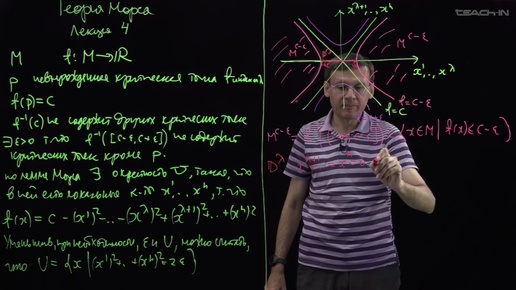 Теория Морса
Лекция 4
M f: M → ℝ
p невырожденная критическая точка
f(p)=c
f⁻¹(c) не содержит других критических точек
∃ε>0 т.что f⁻¹([c-ε,c+ε]) не содержит
критических точек кроме p.
по лемме Морса ∃ окрестность U, такая, что
в ней есть локальные x¹,..,xⁿ, т.что
f(x) = c - (x¹)² - … - (x^λ)² + (x^{λ+1})² + .. + (xⁿ)²
Уменьшив, при необходимости, ε и U, можно считать,
что U = {x | (x¹)² + .. + (xⁿ)² 2ε}
TEACH-IN
x^{λ+1},..,xⁿ
M^{c-ε}
M^{c-ε}
x¹,..,x^λ
f=c-ε
f=c
M^{c-ε} {x∈M | f(x)≤c-ε}
D^λ